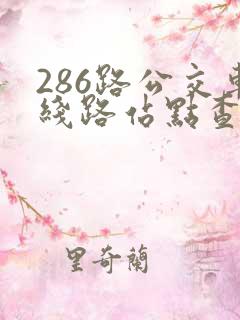 286路公交車
綫路佔點查
里奇蘭